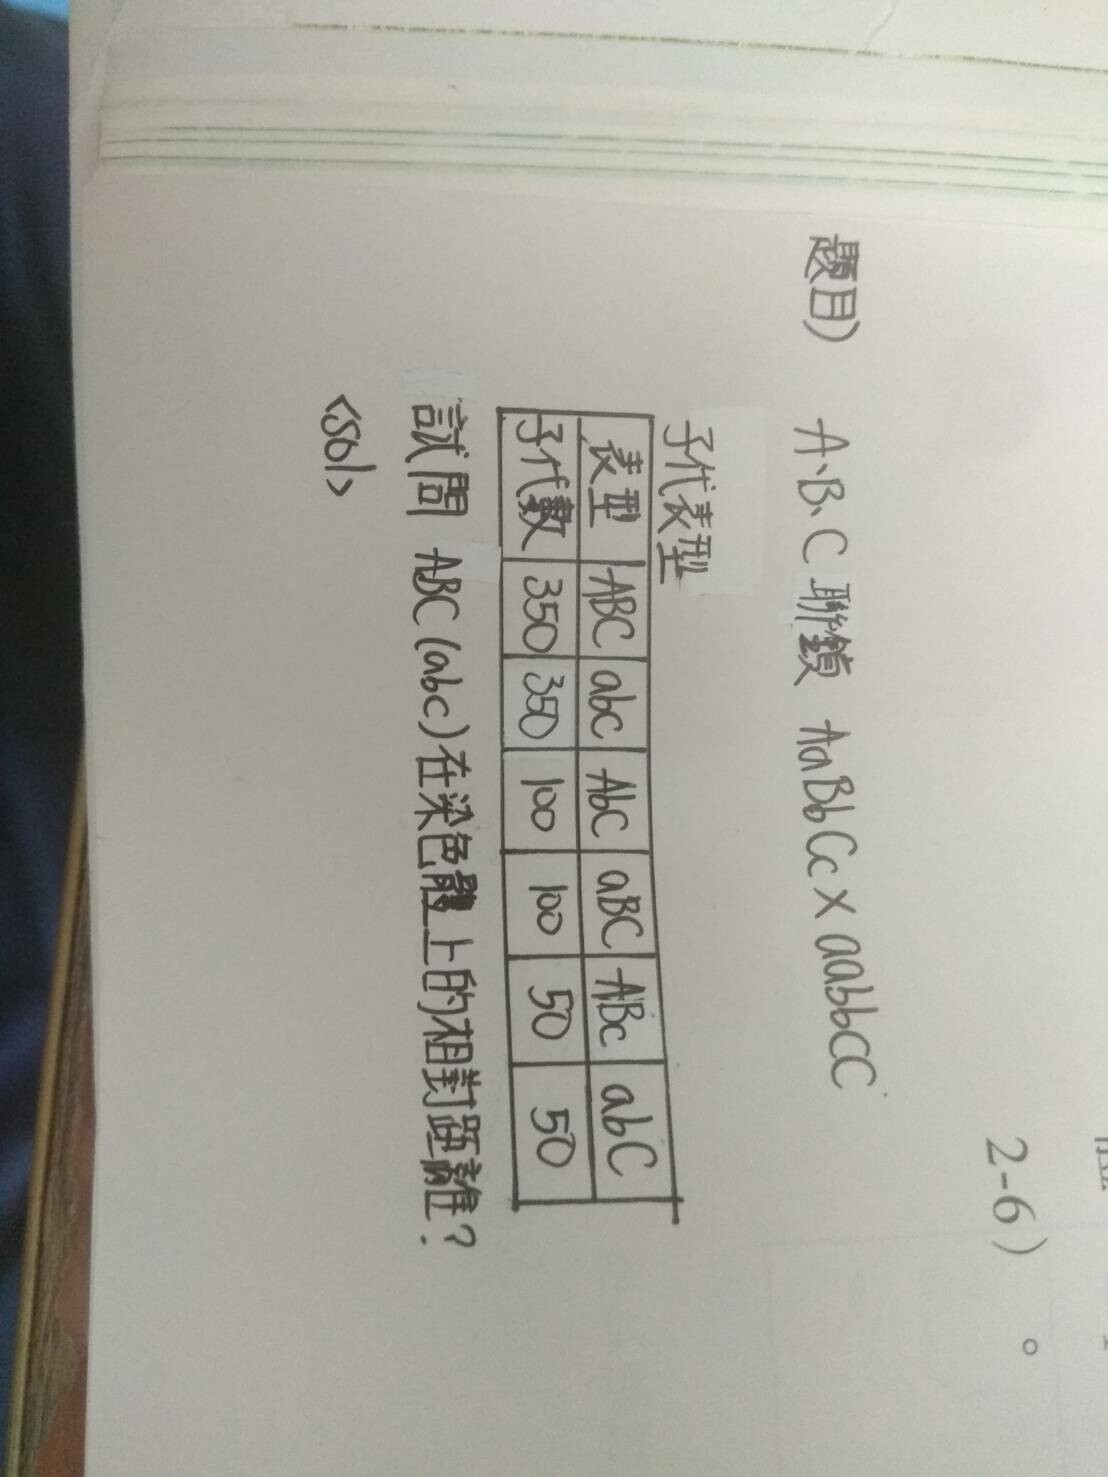 2-6)。
題目) A、B、C 聯鎖 AaBbCc×aabbCC
子代表型
表型 ABC abc Abc aBC ABc abC
子代數 350 350 100 100 50 50
試問 ABC(abc)在染色體上的相對距離?
<sol>